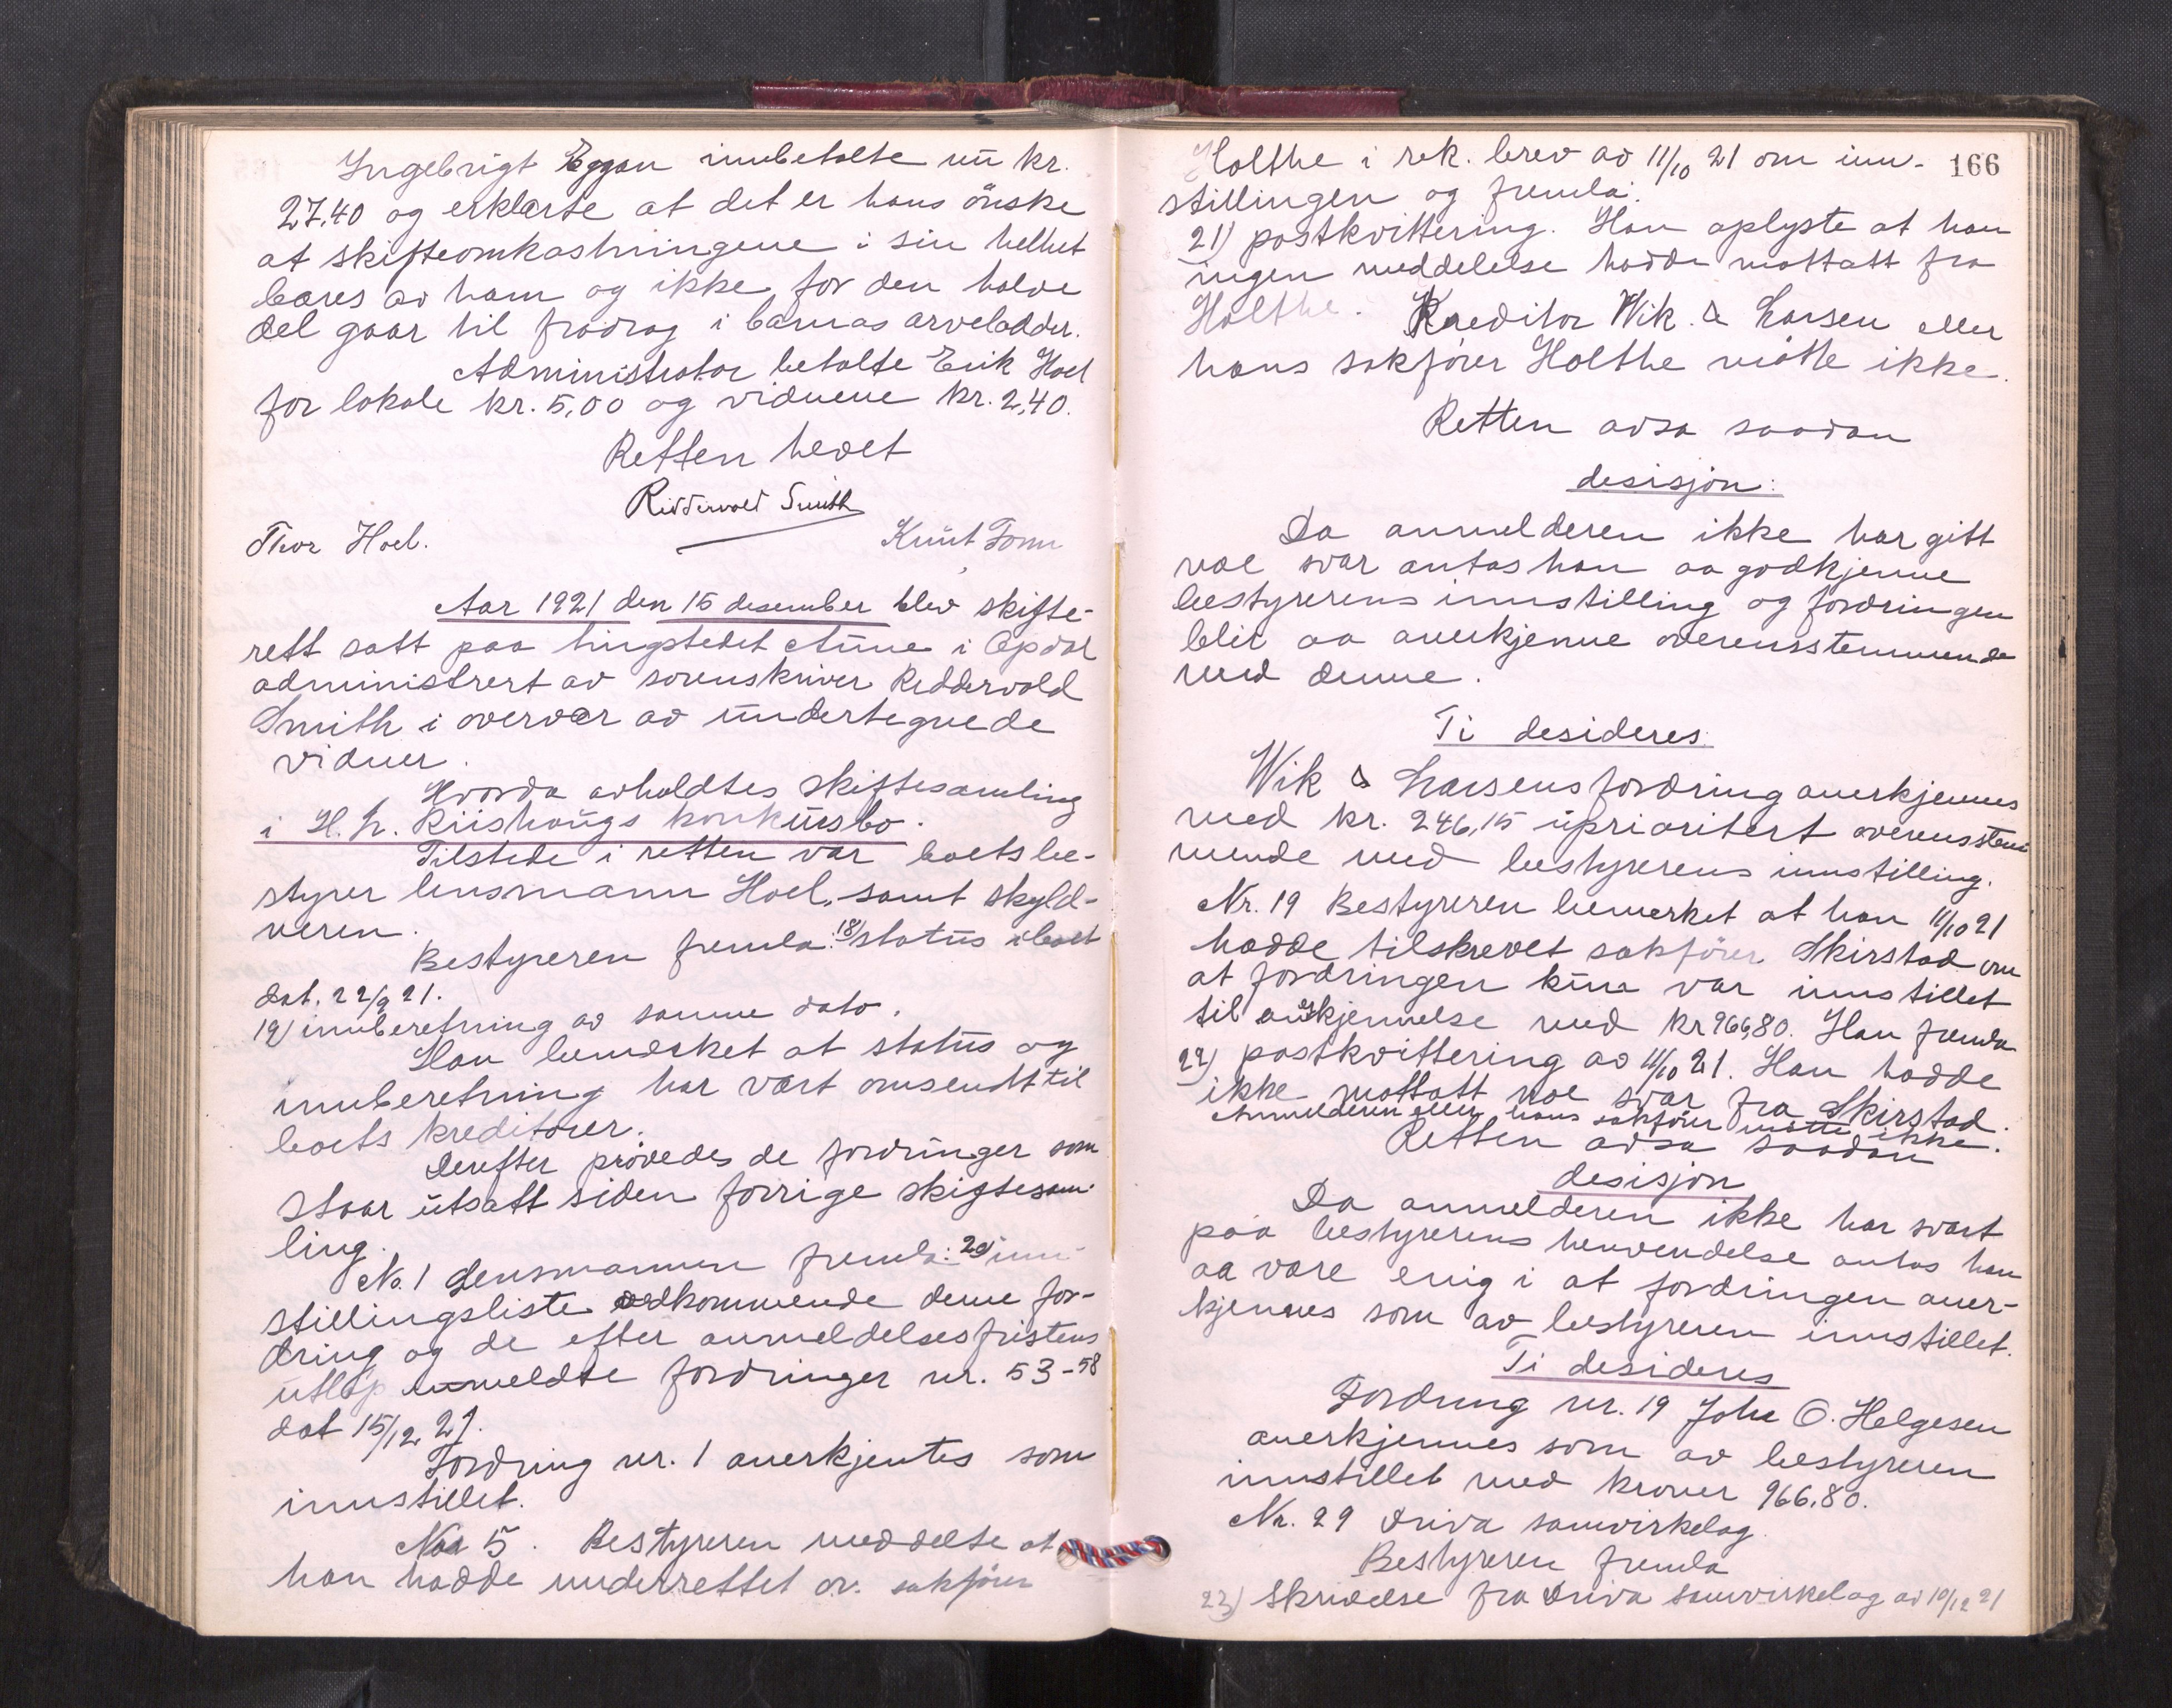 Ingebrigt Eggan innbetalte nu kr.
27.40 og erklærte at det er hans ønske
at skifteomkostningene i sin helhet
bæres av ham og ikke for den halve
del gaar til fradrag i barnas arvelodder.
Administrator betalte Erik Hoel
for lokale kr. 5,00 og vidnene kr. 2,40.
Retten hevet
Riddervold Smith
Thor Hoel. Knut Tonn
Aar 1921 den 15 desember blev skifte-
rett satt paa tingstedet Aune i Opdal
administrert av sorenskriver Riddervold
Smith i overvær av undertegnede
vidner.
Hvorda avholdtes skiftesamling
i H. L. Riishaugs konkursbo.
Tilstede i retten var boets be-
styrer lensmann Hoel, samt skyld-
neren.
Bestyreren fremla: 18) status i boet
dat. 22/9 21.
19) innberetning av samme dato.
Han bemerket at status og
innberetning har vært omsendt til
boets kreditorer.
Derefter prøvedes de fordringer som
staar utsatt siden forrige skiftesam-
ling.
No. 1 Lensmannen fremla: 20) inn-
stillingsliste vedkommende denne for-
dring og de efter anmeldelsesfristens
utløp anmeldte fordringer nr. 53-58
dat 15/12 21.
Fordring nr. 1 anerkjentes som
innstillet.
No 5. Bestyreren meddelte at
han hadde underrettet o.r. sakfører
Holthe i rek. brev av 11/10 21 om inn- 166
stillingen og fremla:
21) postkvittering. Han oplyste at han
ingen meddelelse hadde mottatt fra
Holthe. Kreditor Wik & Larsen eller
hans sakfører Holthe møtte ikke.
Retten avsa saadan
desisjon:
Da anmelderen ikke har gitt
noe svar antas han aa godkjenne
bestyrerens innstilling og fordringen
blir aa anerkjenne overensstemmende
med denne.
Ti desideres:
Wik & Larsens fordring anerkjennes
med kr. 246,15 uprioritert overensstem
mende med bestyrerens innstilling.
Nr. 19 Bestyreren bemerket at han 11/10 21
hadde tilskrevet sakfører Skirstad om
at fordringen kun var innstillet
til anerkjennelse med kr 966,80. Han fremla
22) postkvittering av 11/10 21. Han hadde
ikke mottatt noe svar fra Skirstad.
Anmelderen eller hans sakfører møtte ikke.
Retten avsa saadan
desisjon
Da anmelderen ikke har svart
paa bestyrerens henvendelse antas han
aa være enig i at fordringen aner-
kjennes som av bestyreren innstillet.
Ti desideres
Fordring nr. 19 Johs O. Helgesen
anerkjennes som av bestyreren
innstillet med kroner 966.80.
Nr. 29 Driva samvirkelag.
Bestyreren fremla
23) Skrivelse fra Driva samvirkelag av 10/12 21